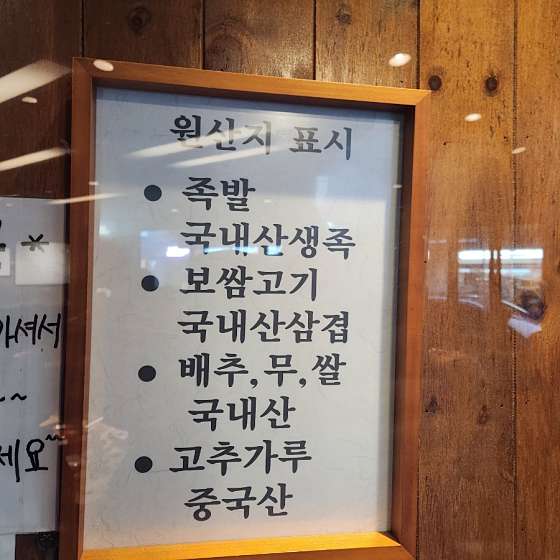 원산지 표시
● 족발
국내산생족
● 보쌈고기
국내산삼겹
● 배추,무,쌀
국내산
● 고추가루
중국산
가셔서
~~
세요~~